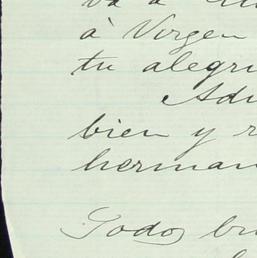 va a
á Virgen
tu alegri
Adi
bien y r
herman
Todos bu